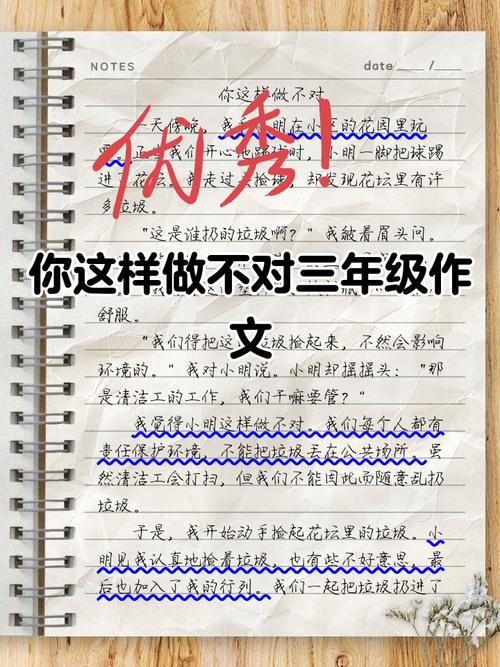 NOTES
date ____ /____
你这样做不对
一天傍晚，我和小明在小区的花园里玩
耍。正当我们开心地踢球时，小明一脚把球踢
进了花坛。我走过去捡球，却发现花坛里有许
多垃圾。
优秀！
"这是谁扔的垃圾啊？"我皱着眉头问。
你这样做不对三年级作
文
舒服。
"我们得把这 垃圾捡起来，不然会影响
环境的。"我对小明说。小明却摇摇头："那
是清洁工的工作，我们干嘛要管？"
我觉得小明这样做不对。我们每个人都有
责任保护环境，不能把垃圾丢在公共场所。虽
然清洁工会打扫，但我们不能因此而随意乱扔
垃圾。
于是，我开始动手捡起花坛里的垃圾。小
明见我认真地捡着垃圾，也有些不好意思，最
后也加入了我的行列。我们一起把垃圾扔进了